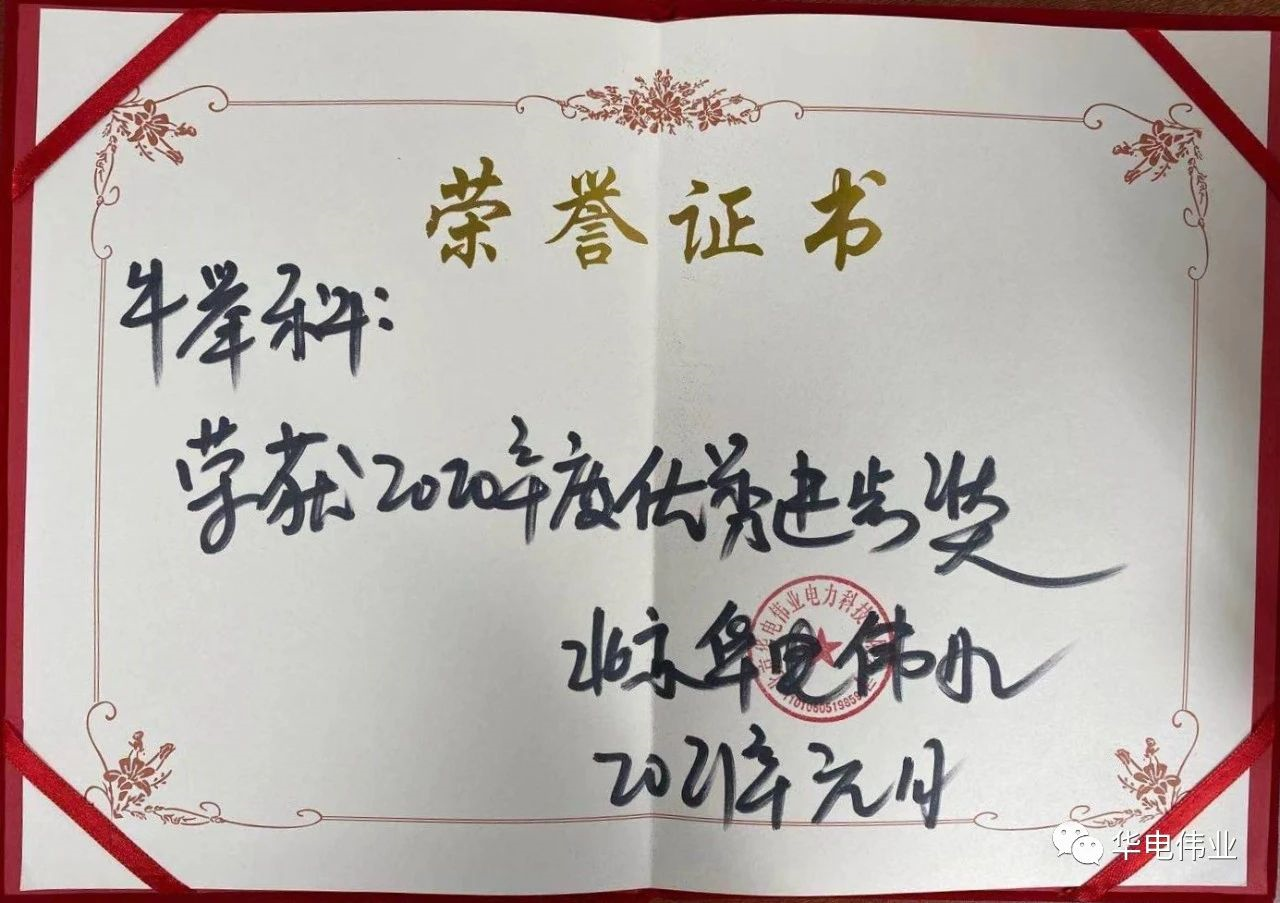 荣誉证书
牛举科:
荣获2020年度优秀进步奖
北京华电伟业
2021年元月
北京华电伟业电力科技
华电伟业